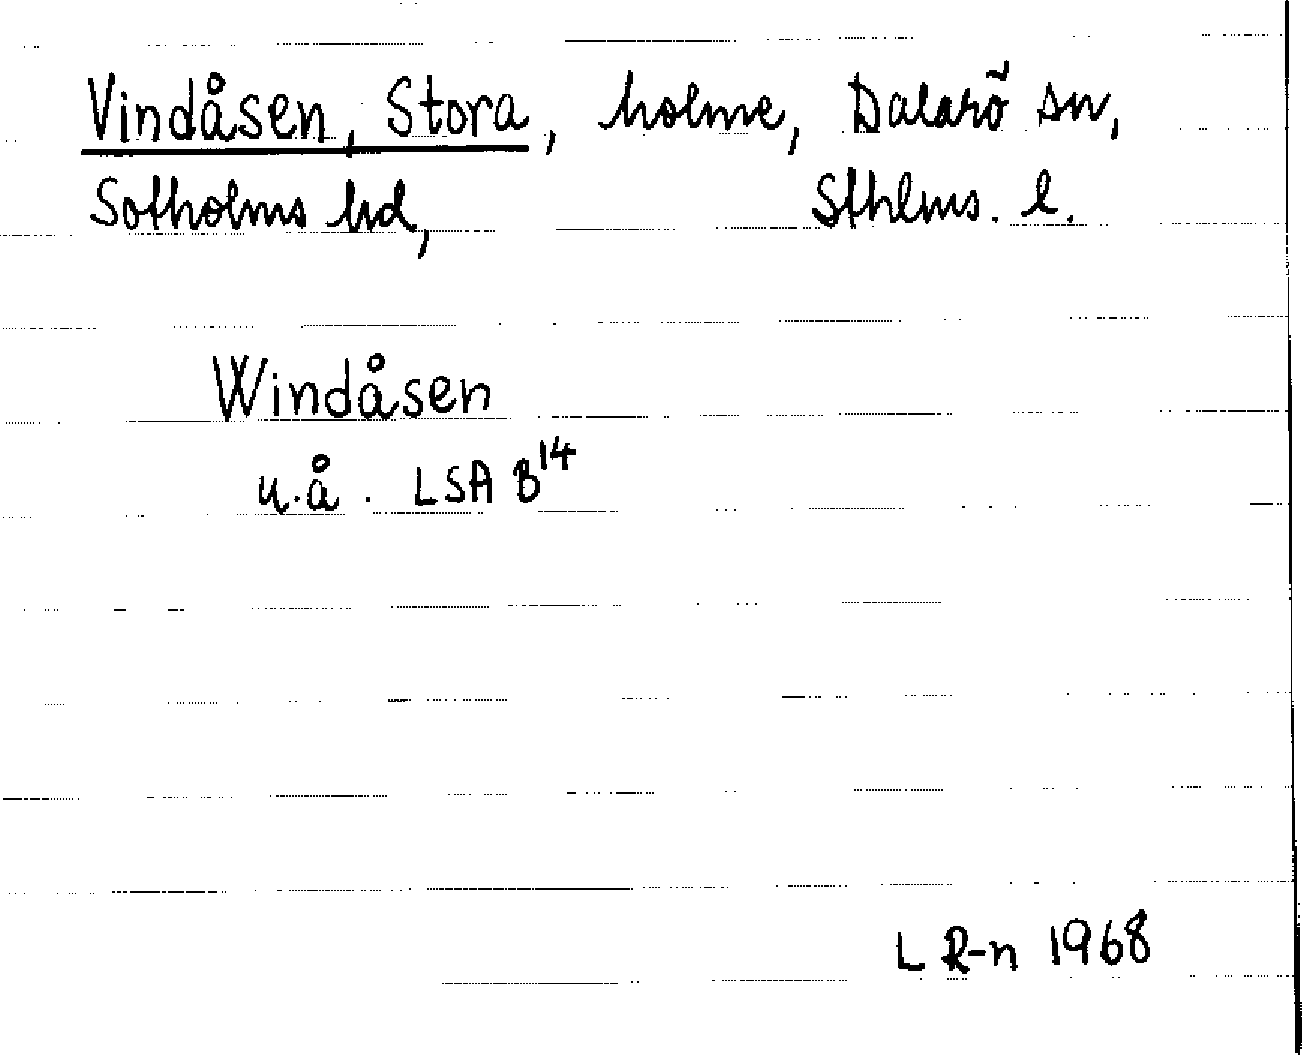 Vindåsen, Stora, holme, Dalarö sn,
Sotholms hd, Sthlms. l.
Windåsen
u.å. LSA B¹⁴
L R-n 1968